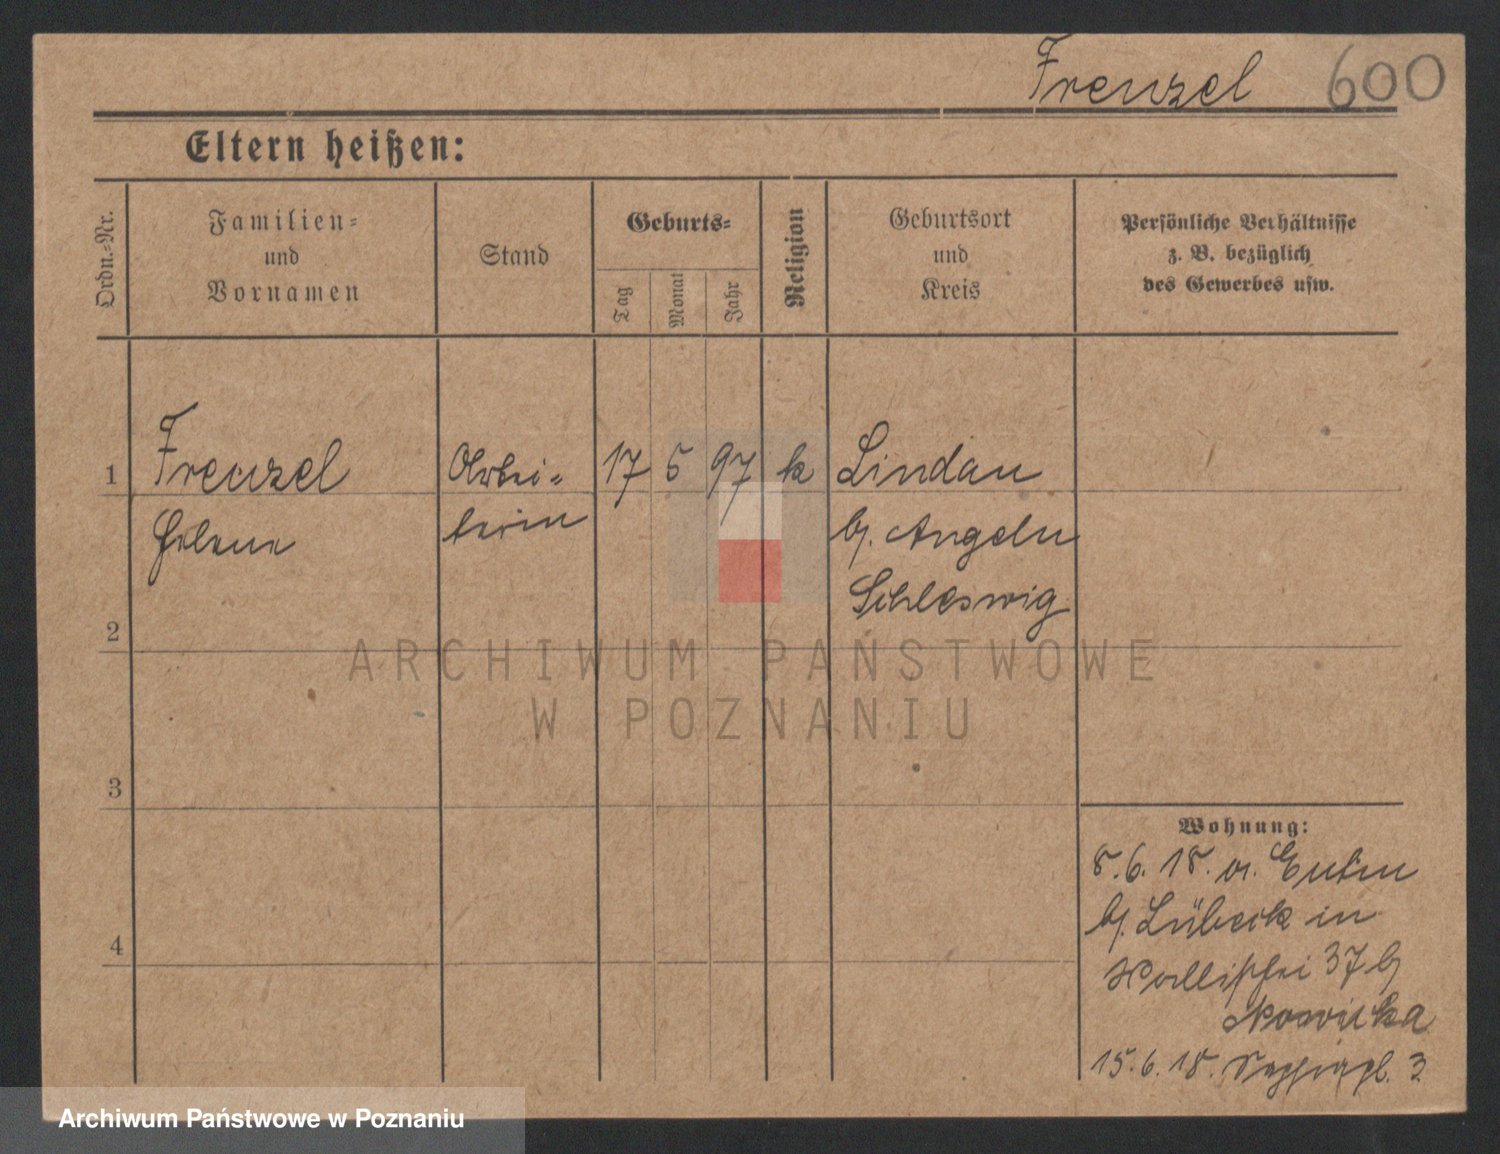 Frenzel 600
Eltern heißen:
Ordn.-Nr.
Familien- und Vornamen
Stand
Geburts-
Tag
Monat
Jahr
Religion
Geburtsort und Kreis
Persönliche Verhältnisse
z. B. bezüglich
des Gewerbes usw.
1 Frenzel Arbei- 17 5 97 k Lindau
Helene terin b/. Angeln
Schleswig
2
3
4
Wohnung:
8.6.18. v. Eutin
b/. Lübeck in
37 b/
Nowicka
15.6.18. 3
ARCHIWUM PAŃSTWOWE
W POZNANIU
Archiwum Państwowe w Poznaniu